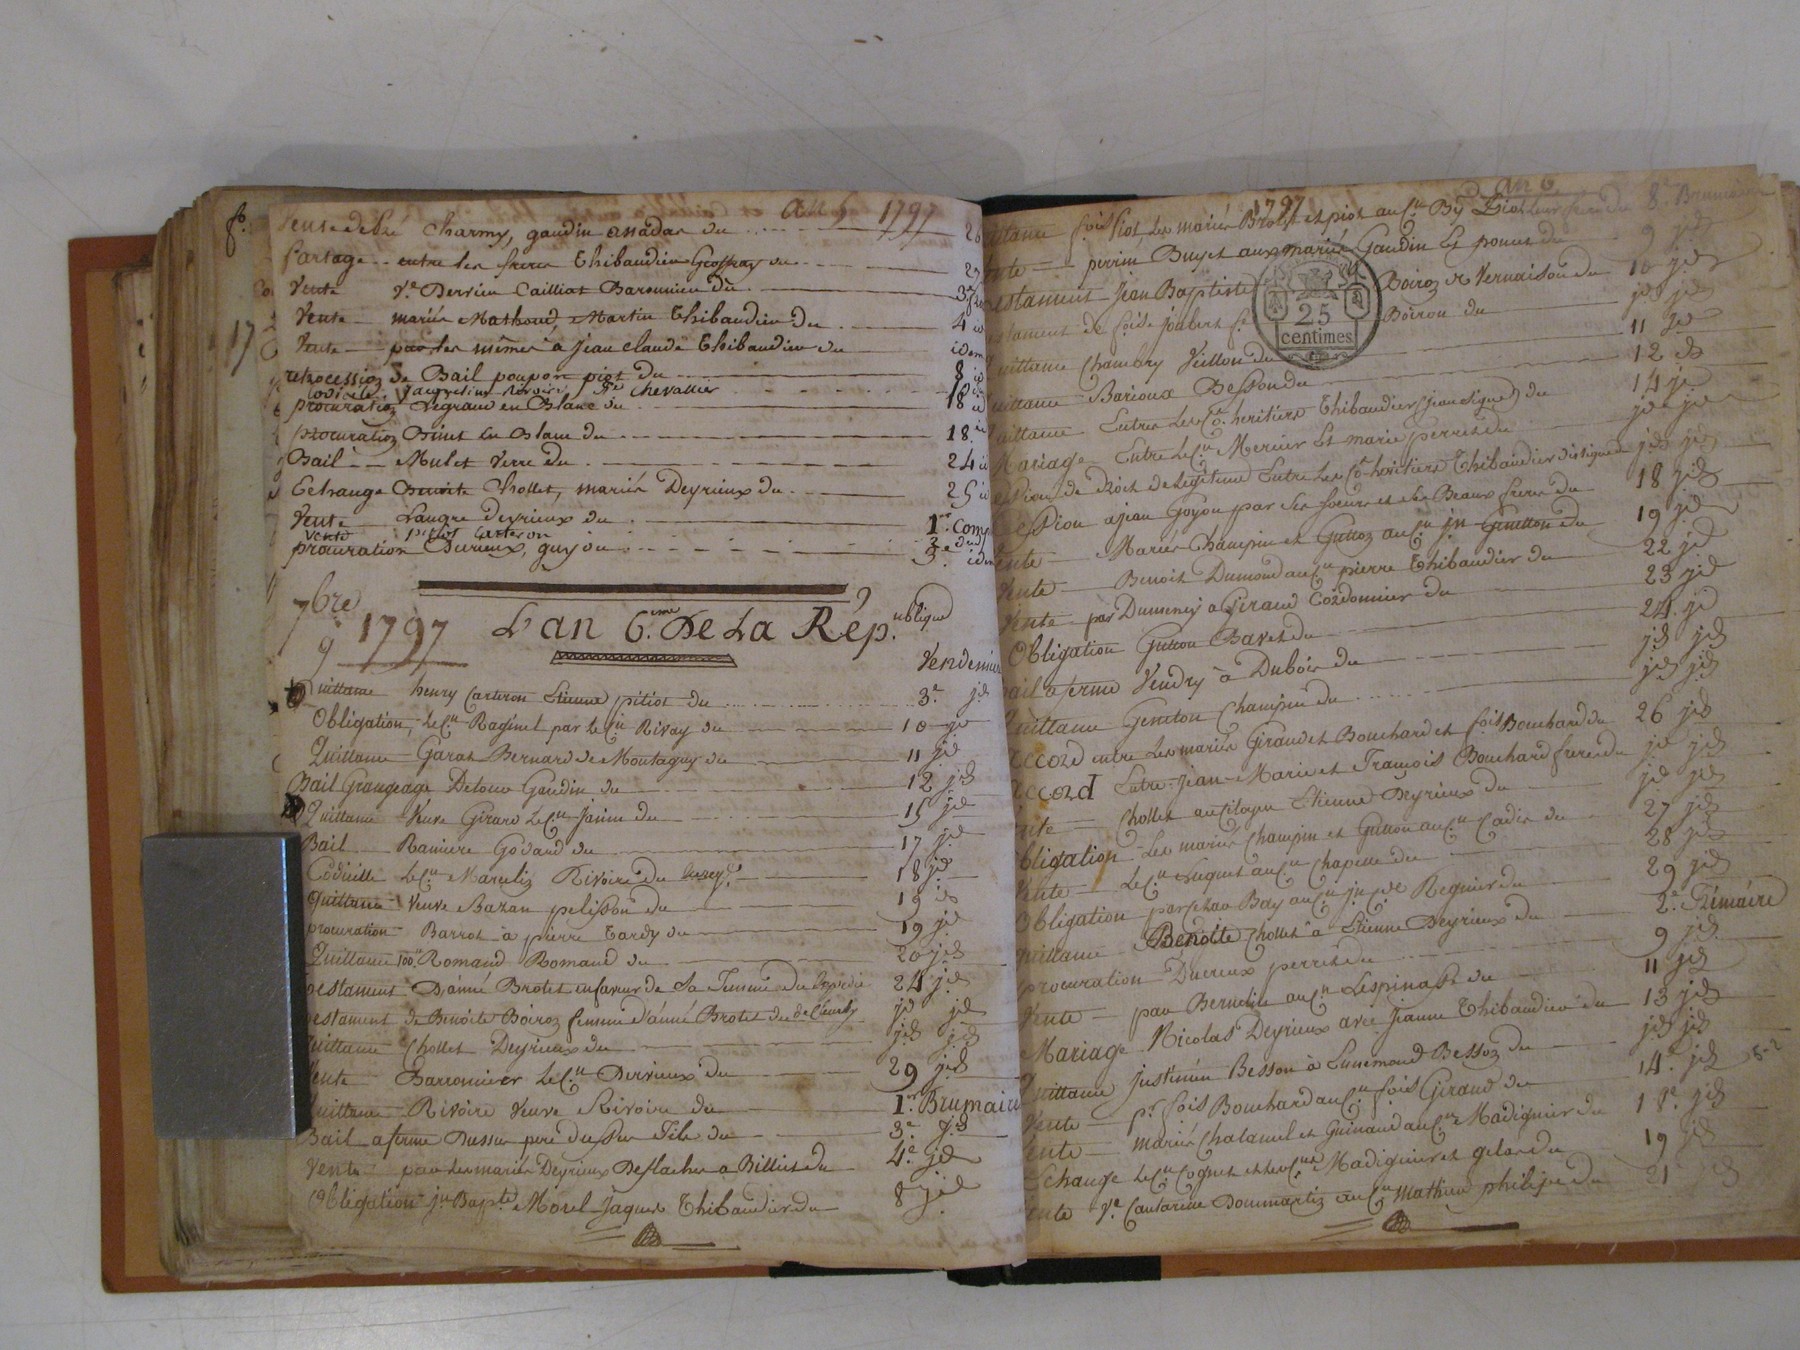 an 5 1797
Charmy, gaudin anadas du
partage entre les freres Thibaudier Geoffray du
Vente Ve. Derrieu Cailliat Baronnier du 3e
Vente mariés Mathoud, Martin Thibaudier du 4
17
Vente par les mêmes à Jean claude Thibaudier du idem
retrocession de Bail poupon piot du 8
Codicile Jacqueline Rivoire Ve chevallier 10
procuration Legrand en Blanc du 18 id
procuration Binet En Blanc du 18
Bail Mulet Verre du 24 id
Echange Benoite Chollet, mariés Deyrieux du 25 id
Vente Laugre deyrieux du 1er Comp
Vente
procuration Durieux, guy du 3e idem
7bre
1797 L'an 6.ème De La Rép.ublique
Vendemiair
Quittance henry Carteron Etienne pitiot du 3e jd
Obligation, Le Cn Raginel par le Cn Rivay du 10 jd
Quittance Garat Bernard de Montagny du 11 jd
Bail Grangeage Detour Gaudin du 12 jd
Quittance Veuve Girard Le Cn Janin du 15 jd
Bail Raniere Godard du 17 jd
Codicille Le Cn Marcelin Rivoire du 18 jd
Quittance Veuve Bazan pelisson du 19 id
procuration Barrot à pierre Tardy du 19 jd
Quittance 100 Romand Romand du 20 jd
testament D'aimé Brotet en faveur de Sa Femme du 24 jd
testament de Benoite Boiron femme d'aimé Brotet du jd jd
Quittance Chollet Deyrieux du jd jd
Vente Barronnier Le Cn Derrieux du 29 jd
Quittance Rivoire Veuve Rivoire du 1er Brumaire
Bail a ferme Dussu pere du Sr Fils du 3e jd
Vente par les mariés Deyrieux Deflacher a Billiet du 4e jd
Obligation jn Bapte Morel Jaques Thibaudier du 8 jd
an 6
1797
Quittance fois piot, Les mariés Brotet et piot au Cn 8e Brumaire
Vente perrin Buyet aux mariés Gaudin Et poncet du 9 jd
testament Jean Baptiste Boiroz de Vernaison du 10 jd
testament de Boiron du jd jd
25
centimes
Quittance Chambry Veillon du 11 jd
Quittance Barioux Besson du 12 id
Quittance Entre Les Co. heritiers Thibaudier (jean signé) du 14 jd
Mariage Entre Le Cn Mercier Et marie perret du jd jd
Cession de Droit de Legitime Entre Les Co-heritiers Thibaudier jd jd
Cession a jean Goyon par Ses soeurs et Ses Beaux freres du 18 jd
Vente Mariés Champin et Guttoz au Cn jn Guitton du 19 jd
Vente Benoit Dumond au Cn pierre Thibaudier du 22 jd
Vente par Dumeny à Giraud Cordonnier du 23 jd
Obligation Guitton Bavet du 24 jd
Bail a ferme Vendry à Dubois du jd jd
Quittance Geneton Champin du jd jd
Accord entre Les mariés Giraud et Bouchard et fois Bouchard du 26 jd
Accord Entre Jean Marie et François Bouchard frere du jd jd
Vente Chollet au Citoyen Etienne Deyrieux du jd jd
Obligation Les mariés Champin et Guitton au Cn Cadis du 27 jd
Vente Le Cn Luquet au Cn Chapelle du 28 jd
Obligation Bay au Cn Regnier du 29 jd
Quittance Benoite Chollet à Etienne Deyrieux du 2e Frimaire
procuration Ducreux perret du 9 jd
Vente par Bernelin au Cn Lespinasse du 11 jd
Mariage Nicolas Deyrieux avec Jeanne Thibaudier du 13 jd
Quittance Justinien Besson à Ennemond Bessoz du jd jd
Vente pr fois Bouchard au Cn fois Giraud du 14e jd
Vente mariés Chatanel et Guinand au Cn Madignier du 18e jd
Echange Le Cn Cognet et les Cns Madignier et gelas du 19 jd
Vente Ve Cantarine Dommartin au Cn Mathieu philipe du 21 jd